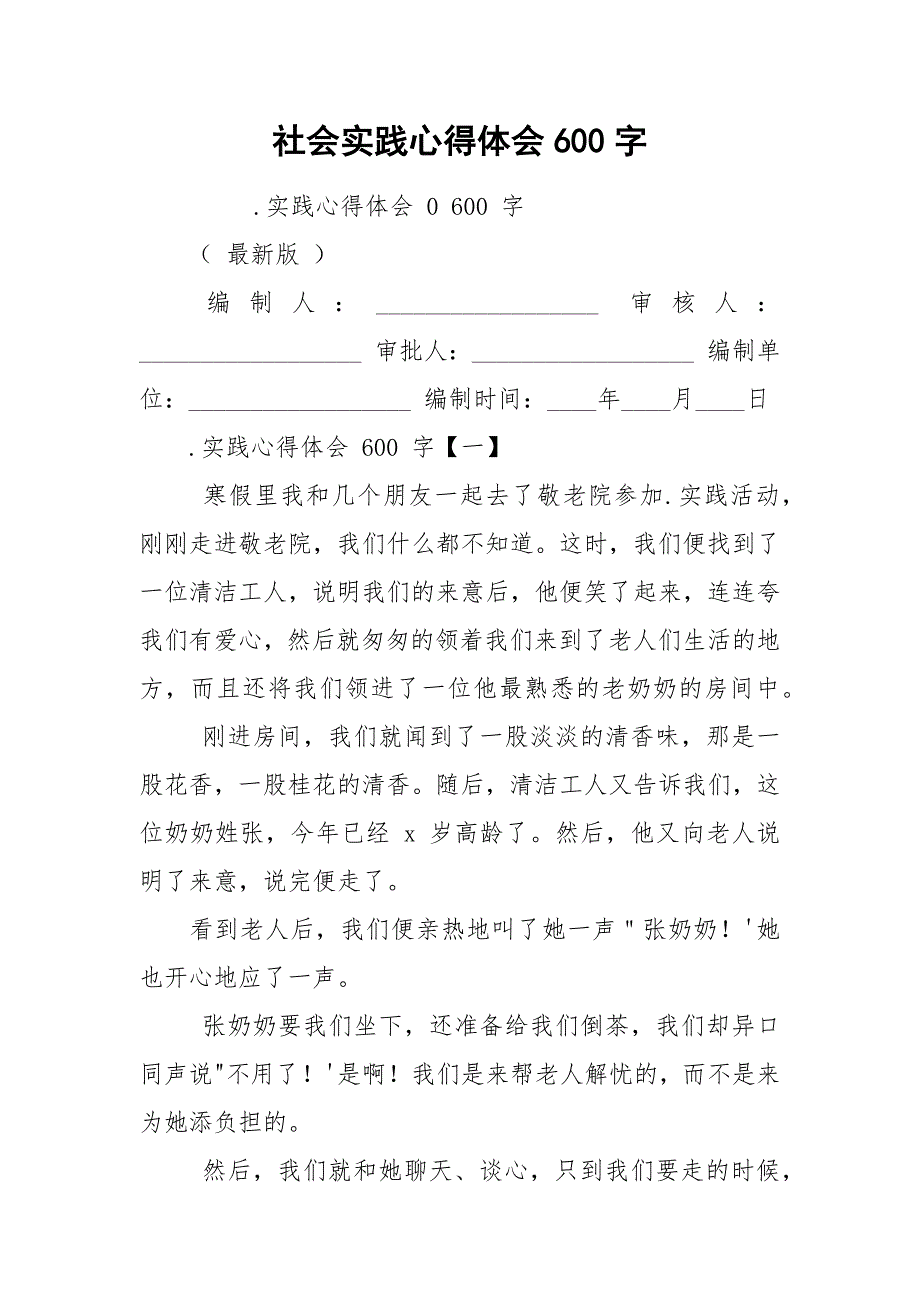 社会实践心得体会600字
.实践心得体会 0 600 字
（ 最新版 ）
编 制 人 ： __________________ 审 核 人 ：
__________________ 审批人：__________________ 编制单
位：__________________ 编制时间：____年____月____日
.实践心得体会 600 字【一】
寒假里我和几个朋友一起去了敬老院参加.实践活动，
刚刚走进敬老院，我们什么都不知道。这时，我们便找到了
一位清洁工人，说明我们的来意后，他便笑了起来，连连夸
我们有爱心，然后就匆匆的领着我们来到了老人们生活的地
方，而且还将我们领进了一位他最熟悉的老奶奶的房间中。
刚进房间，我们就闻到了一股淡淡的清香味，那是一
股花香，一股桂花的清香。随后，清洁工人又告诉我们，这
位奶奶姓张，今年已经 x 岁高龄了。然后，他又向老人说
明了来意，说完便走了。
看到老人后，我们便亲热地叫了她一声＂张奶奶！'她
也开心地应了一声。
张奶奶要我们坐下，还准备给我们倒茶，我们却异口
同声说"不用了！'是啊！我们是来帮老人解忧的，而不是来
为她添负担的。
然后，我们就和她聊天、谈心，只到我们要走的时候，